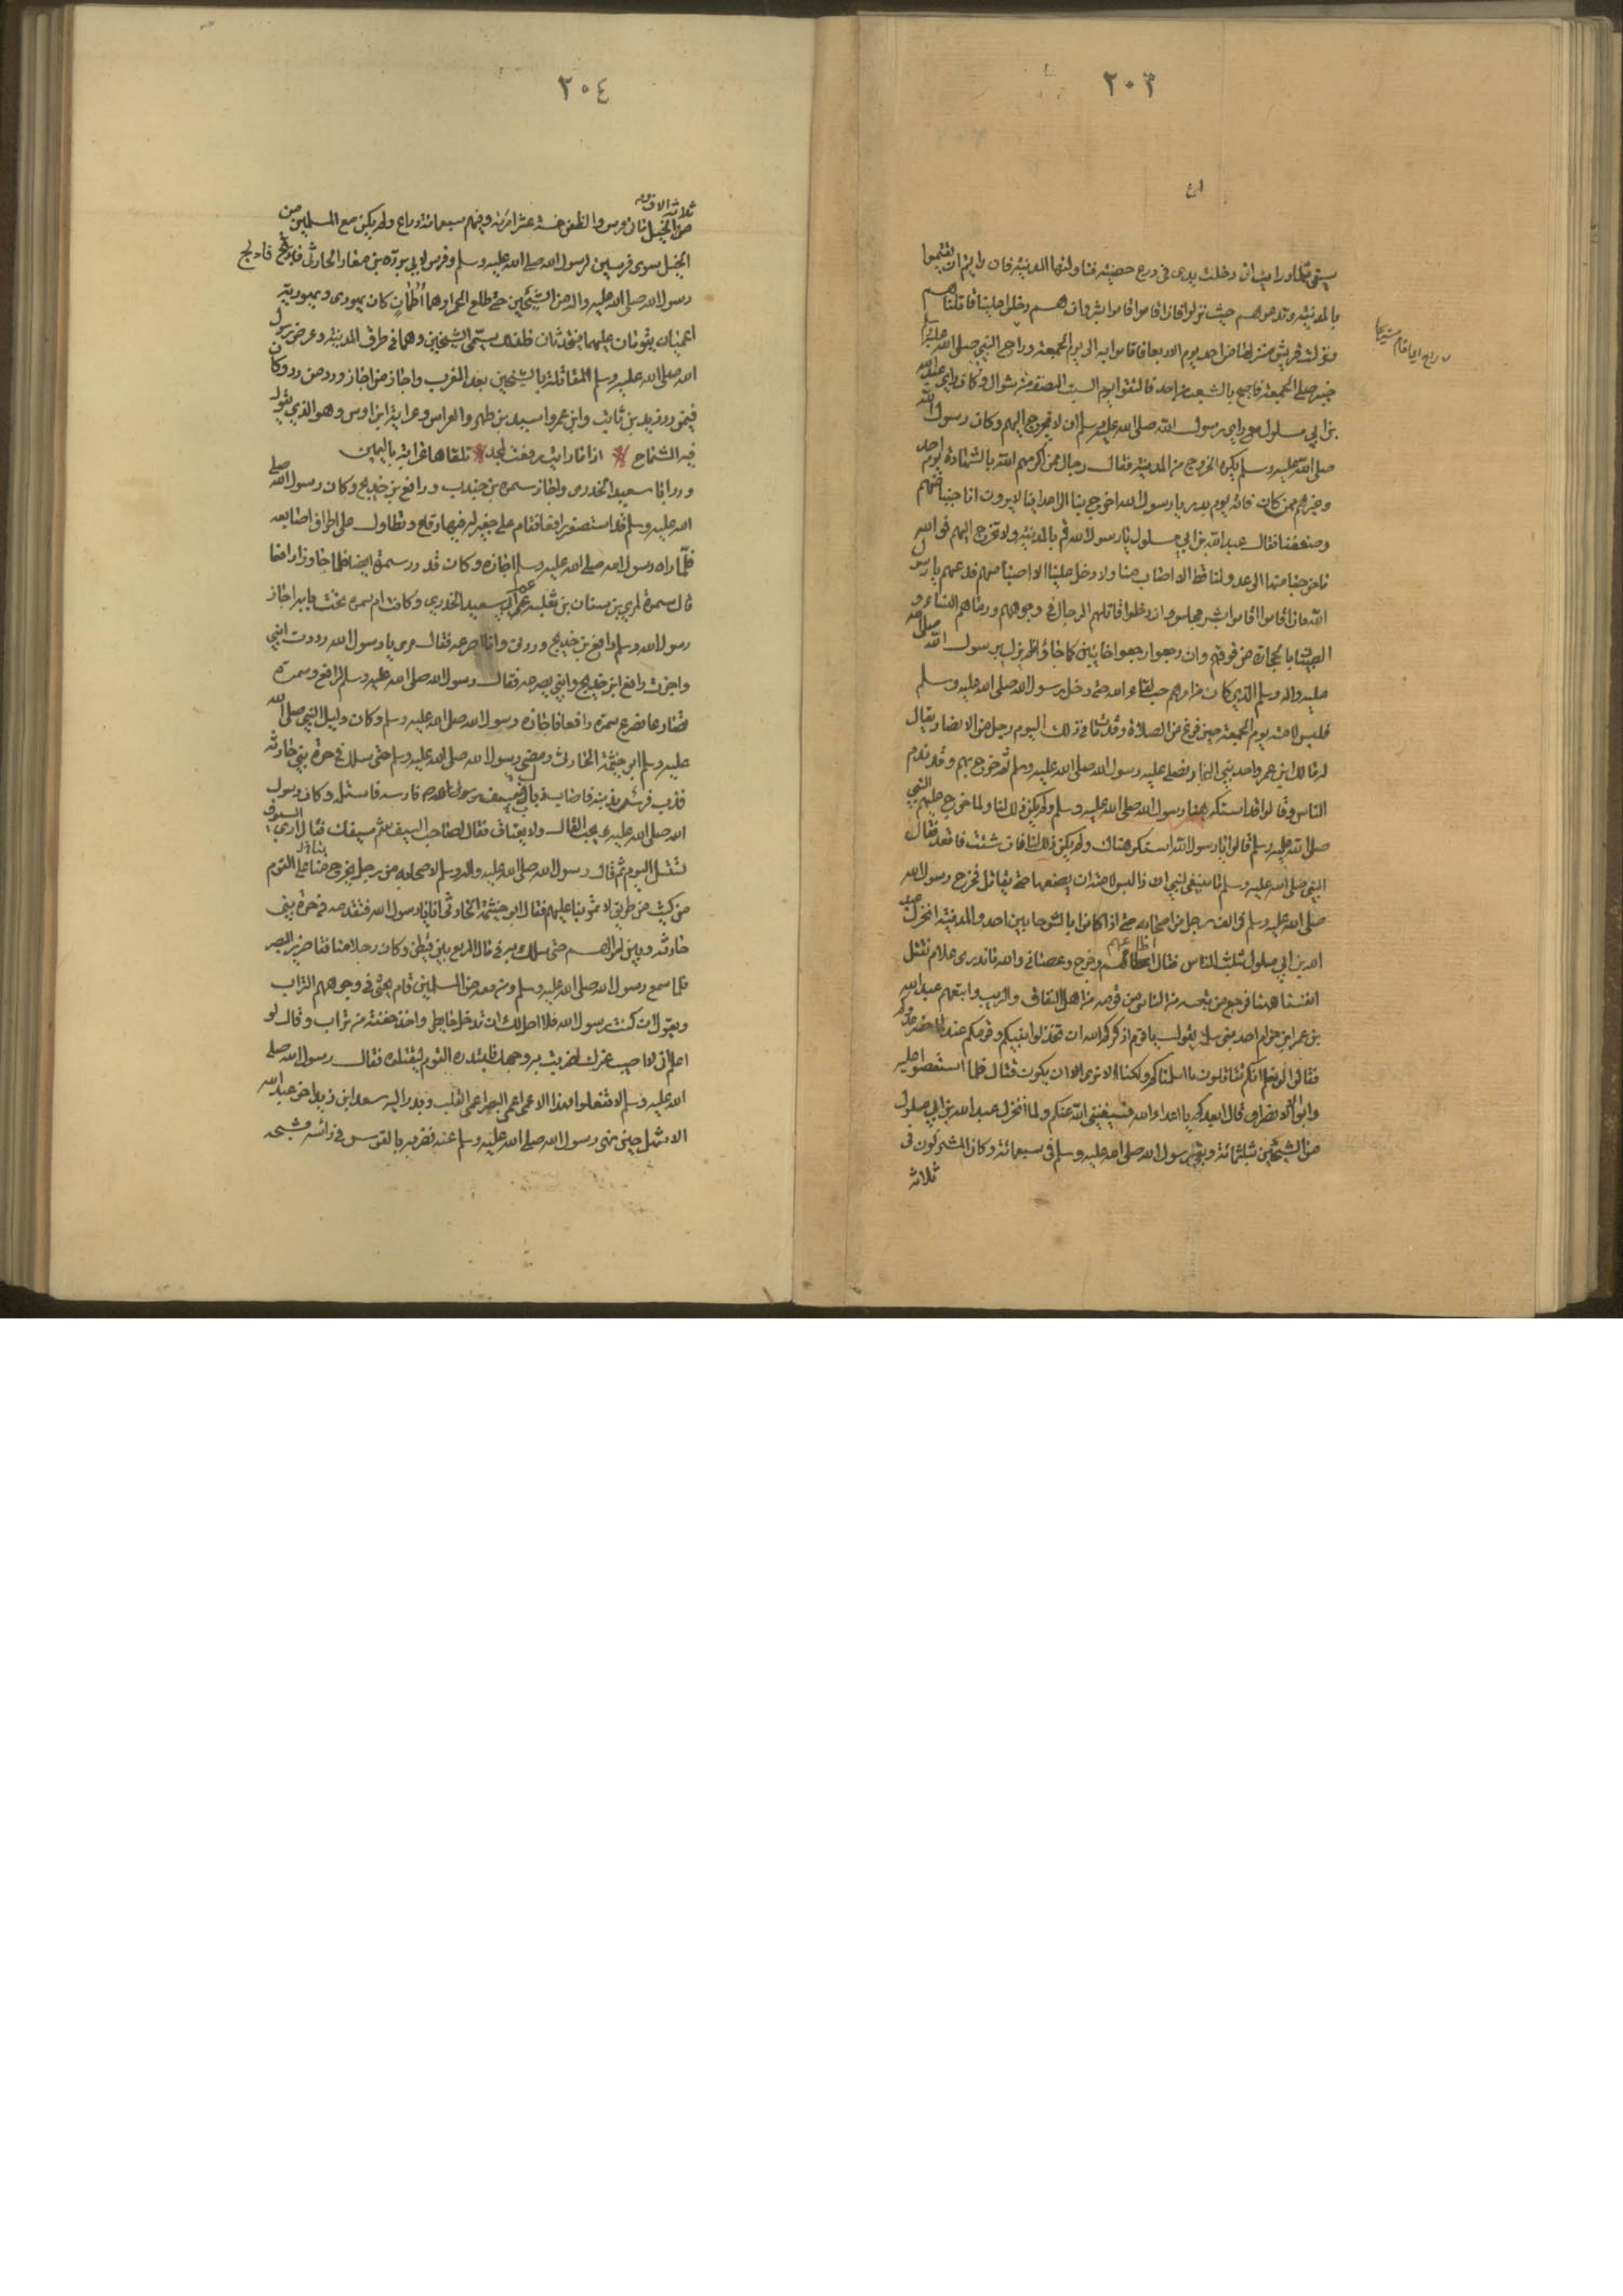 ٢٠٣
سيفي ثلما ورايت اني ادخلت يدي في درع حصينة فتاولتها المدينة فان رايتم ان تقيموا
بالمدينة وتدعوهم حيث نزلوا فان اقاموا اقاموا بشر وان هم دخلوا علينا قاتلناهم
ونزلت قريش منزلها من احد يوم الاربعا فاقاموا به الى يوم الجمعة وراح النبي صلى الله عليه وسلم
حين صلى الجمعة فاصبح بالشعب من احد فالتقوا يوم السبت النصف من شوال وكان راي عبد الله
بن ابي سلول مع راي رسول الله صلى الله عليه وسلم ان لا يخرج اليهم وكان رسول الله
صلى الله عليه وسلم يكره الخروج من المدينة فقال رجال ممن اكرمهم الله بالشهادة يوم احد
وغيرهم ممن كان فاته يوم بدر يا رسول الله اخرج بنا الى اعدائنا لا يرون انا جبنا عنهم
وضعفنا فقال عبد الله بن ابي سلول يا رسول الله اقم بالمدينة ولا تخرج اليهم فو الله
ما خرجنا منها الى عدو لنا قط الا اصاب منا ولا دخل علينا الا اصبنا منهم فدعهم يا رسول
الله فان اقاموا اقاموا بشر مجلس وان دخلوا قاتلهم الرجال في وجوههم ورماهم النساء و
الصبيان بالحجارة من فوقهم وان رجعوا رجعوا خائبين كما جاؤا فلم يزل برسول الله صلى الله
عليه واله وسلم الذي كان من امرهم حب لقاء الله حتى دخل رسول الله صلى الله عليه وسلم
فلبس لامته يوم الجمعة حين فرغ من الصلاة وقد مات في ذلك اليوم رجل من الانصار يقال
له مالك ابن عمرو احد بني النجار فصلى عليه رسول الله صلى الله عليه وسلم ثم خرج بهم وقد ندم
الناس وقالوا قد استكرهنا رسول الله صلى الله عليه وسلم ولم يكن ذلك لنا ولما خرج عليهم النبي
صلى الله عليه وسلم قالوا يا رسول الله استكرهناك ولم يكن ذلك لنا فان شئت فاقعد فقال
النبي صلى الله عليه وسلم ما ينبغي لنبي اذا لبس لامته ان يضعها حتى يقاتل فخرج رسول الله
صلى الله عليه وسلم في الف رجل من اصحابه حتى اذا كانوا بالشوط بين احد والمدينة انخزل عبد
الله بن ابي سلول بثلث الناس فقال اطاعهم وخرج وعصاني والله ما ندري علام نقتل
انفسنا ههنا فرجع من تبعه من الناس من قومه من اهل النفاق والريب واتبعهم عبد الله
بن عمرو ابن حرام احد بني سلمة يقول يا قوم اذكركم الله ان تخذلوا نبيكم وقومكم عند ما حضر عدوكم
فقالوا لو نعلم انكم تقاتلون ما اسلمناكم ولكنا لا نرى ان يكون قتال فلما استعصوا عليه
وابوا الا الانصراف قال ابعدكم يا اعداء الله فسيغني الله عنكم ولما انخزل عبد الله بن ابي سلول
من الشيخين بثلثمائة وبقي رسول الله صلى الله عليه وسلم في سبعمائة وكان المشركون في
ثلاثة
٢٠٤
ثلاثة الاف
من الخيل مائتا فرس والظعن خمسة عشر امرءة وفيهم سبعمائة دراع ولم يكن مع المسلمين من
الخيل سوى فرسين فرس لرسول الله صلى الله عليه وسلم وفرس لابي بردة بن نيار الحارثي فادلج
رسول الله صلى الله عليه واله من الشيخين حتى طلع الحمرا وهما اطمان كان يهودي ويهودية
اعميان يقومان عليهما يتحدثان فلذلك سمي الشيخين وهما في طرف المدينة وعرض رسول
الله صلى الله عليه وسلم المقاتلة بالشيخين بعد المغرب واجاز من اجاز ورد من رد وكان
فيمن رد زيد بن ثابت وابن عمر واسيد بن ظهير والعراس وعرابة ابن اوس وهو الذي يقول
فيه الشماخ اذا ما راية رفعت لمجد تلقاها عرابة باليمين
ورد ابا سعيد الخدري واجاز سمرة بن جندب ورافع بن خديج وكان رسول الله صلى
الله عليه وسلم قد استصغر رافعا فقام على خفين له فيهما رقاع وتطاول على اطراف اصابعه
فلما راه رسول الله صلى الله عليه وسلم اجازه وكان قد رد سمرة ايضا فلما اجاز رافعا
قال سمرة لمري بن سنان بن ثعلبة عم ابي سعيد الخدري وكانت ام سمرة تحت يا ابه اجاز
رسول الله وسلم رافع بن خديج وردني وانا اصرعه فقال مري يا رسول الله رددت ابني
واجزت رافع ابن خديج وابني يصرعه فقال رسول الله صلى الله عليه وسلم لرافع وسمرة
تصارعا فصرع سمرة رافعا فاجازه رسول الله صلى الله عليه وسلم وكان دليل النبي صلى الله
عليه وسلم ابو خيثمة الحارث ومضى رسول الله صلى الله عليه وسلم حتى سلك في حرة بني حارثة
فذب فرس بذنبه فاصاب ذباب سيف فاستله وكان رسول
الله صلى الله عليه يحب الفال ولا يعتاف فقال لصاحب السيف شم سيفك فاني ارى السيوف
تستل اليوم ثم قال رسول الله صلى الله عليه واله وسلم لاصحابه من رجل يخرج بنا على القوم
من كثب من طريق لا تمر بنا عليهم فقال ابو خيثمة الحارثي انا يا رسول الله فتقدمه في حرة بني
حارثة وبين اموالهم حتى سلك به في مال المربع بن قيظي وكان رجلا منافقا ضرير البصر
فلما سمع رسول الله صلى الله عليه وسلم ومن معه من المسلمين قام يحثي في وجوههم التراب
ويقول ان كنت رسول الله فلا احل لك ان تدخل حايطي واخذ حفنة من تراب وقال لو
اعلم اني لا اصيب غيرك لضربت به وجهك فابتدره القوم ليقتلوه فقال رسول الله صلى
الله عليه وسلم لا تفعلوا فهذا الاعمى اعمى البصر اعمى القلب وبدر اليه سعد ابن زيد اخو عبد الله
الاشهل حين نهى رسول الله صلى الله عليه وسلم عنه فضربه بالقوس في رأسه فشجه